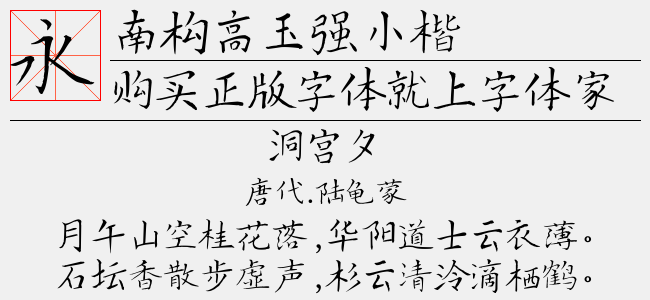 永
南构高玉强小楷
购买正版字体就上字体家
洞宫夕
唐代.陆龟蒙
月午山空桂花落,华阳道士云衣薄。
石坛香散步虚声,杉云清泠滴栖鹤。